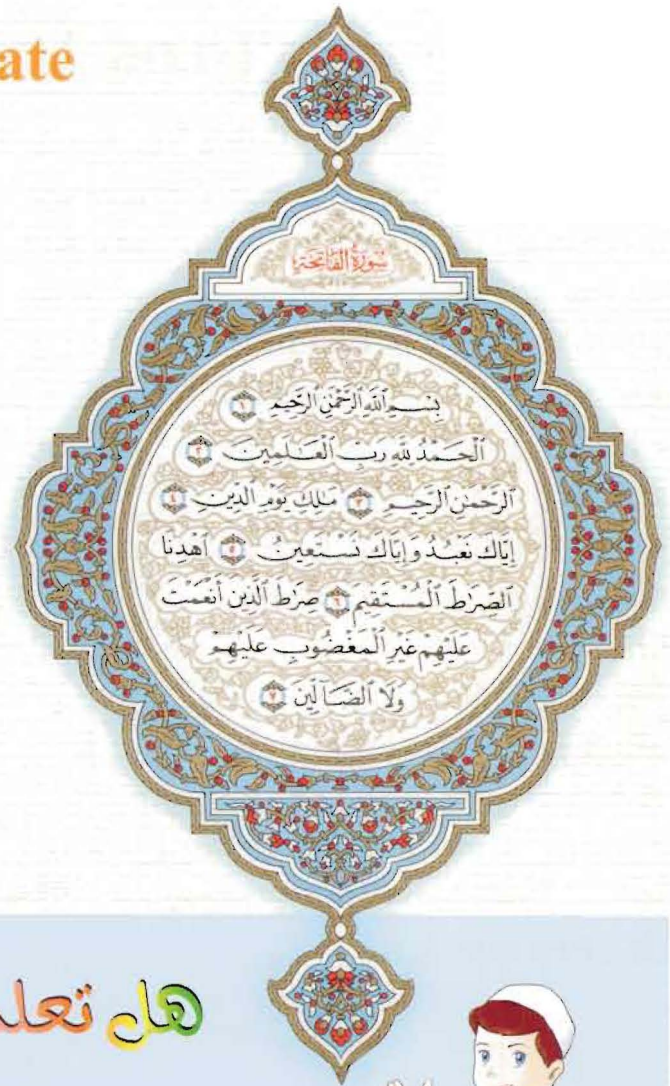 ate
سُورَةُ الْفَاتِحَةِ
بِسْمِ ٱللَّهِ ٱلرَّحْمَٰنِ ٱلرَّحِيمِ ١
ٱلْحَمْدُ لِلَّهِ رَبِّ ٱلْعَٰلَمِينَ ٢
ٱلرَّحْمَٰنِ ٱلرَّحِيمِ ٣ مَٰلِكِ يَوْمِ ٱلدِّينِ ٤
إِيَّاكَ نَعْبُدُ وَإِيَّاكَ نَسْتَعِينُ ٥ ٱهْدِنَا
ٱلصِّرَٰطَ ٱلْمُسْتَقِيمَ ٦ صِرَٰطَ ٱلَّذِينَ أَنْعَمْتَ
عَلَيْهِمْ غَيْرِ ٱلْمَغْضُوبِ عَلَيْهِمْ
وَلَا ٱلضَّآلِّينَ ٧
هل تعل